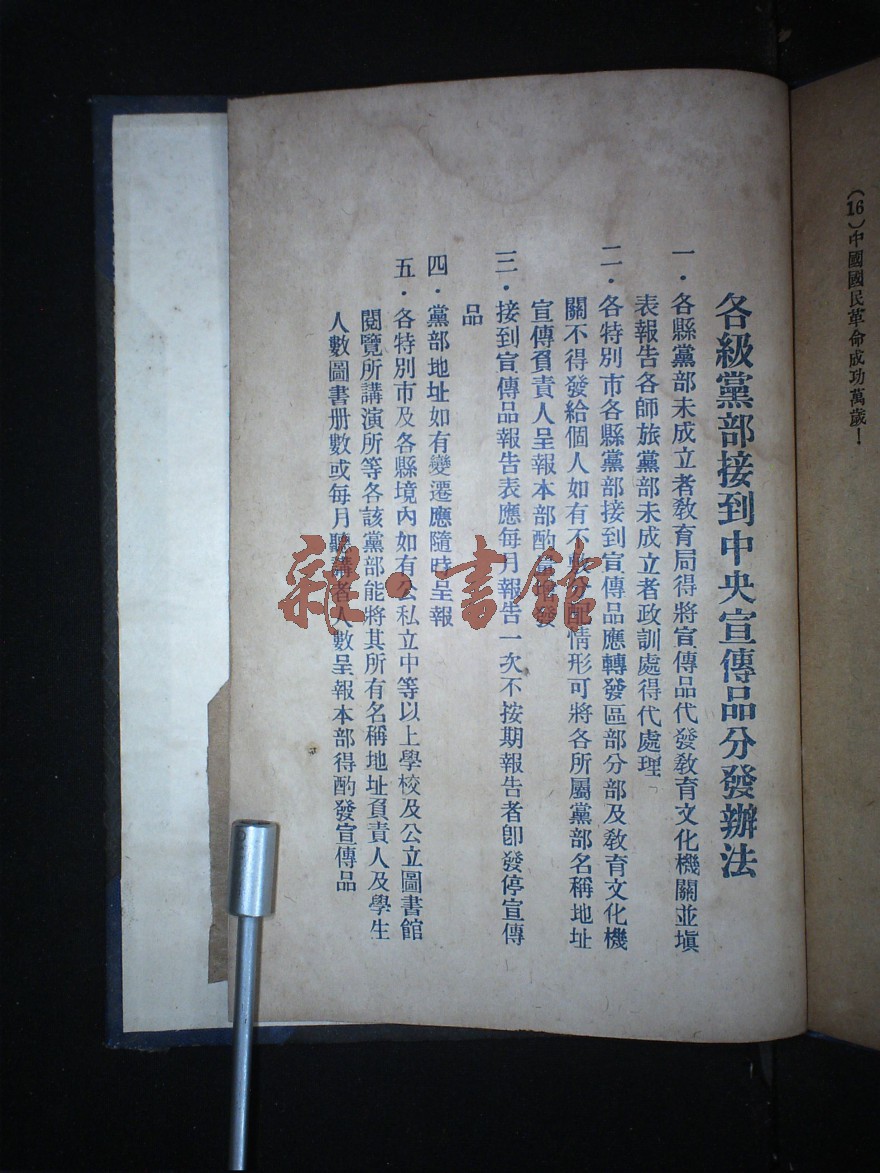 (16)中國國民革命成功萬歲！
各級黨部接到中央宣傳品分發辦法
一．各縣黨部未成立者教育局得將宣傳品代發教育文化機關並塡
表報告各師旅黨部未成立者政訓處得代處理
二．各特別市各縣黨部接到宣傳品應轉發區部分部及教育文化機
關不得發給個人如有不敷分配情形可將各所屬黨部名稱地址
宣傳負責人呈報本部酌發
三．接到宣傳品報告表應每月報告一次不按期報告者卽發停宣傳
品
四．黨部地址如有變遷應隨時呈報
五．各特別市及各縣境內如有公私立中等以上學校及公立圖書館
閱覽所講演所等各該黨部能將其所有名稱地址負責人及學生
人數圖書册數或每月聽講者人數呈報本部得酌發宣傳品
雜·書館